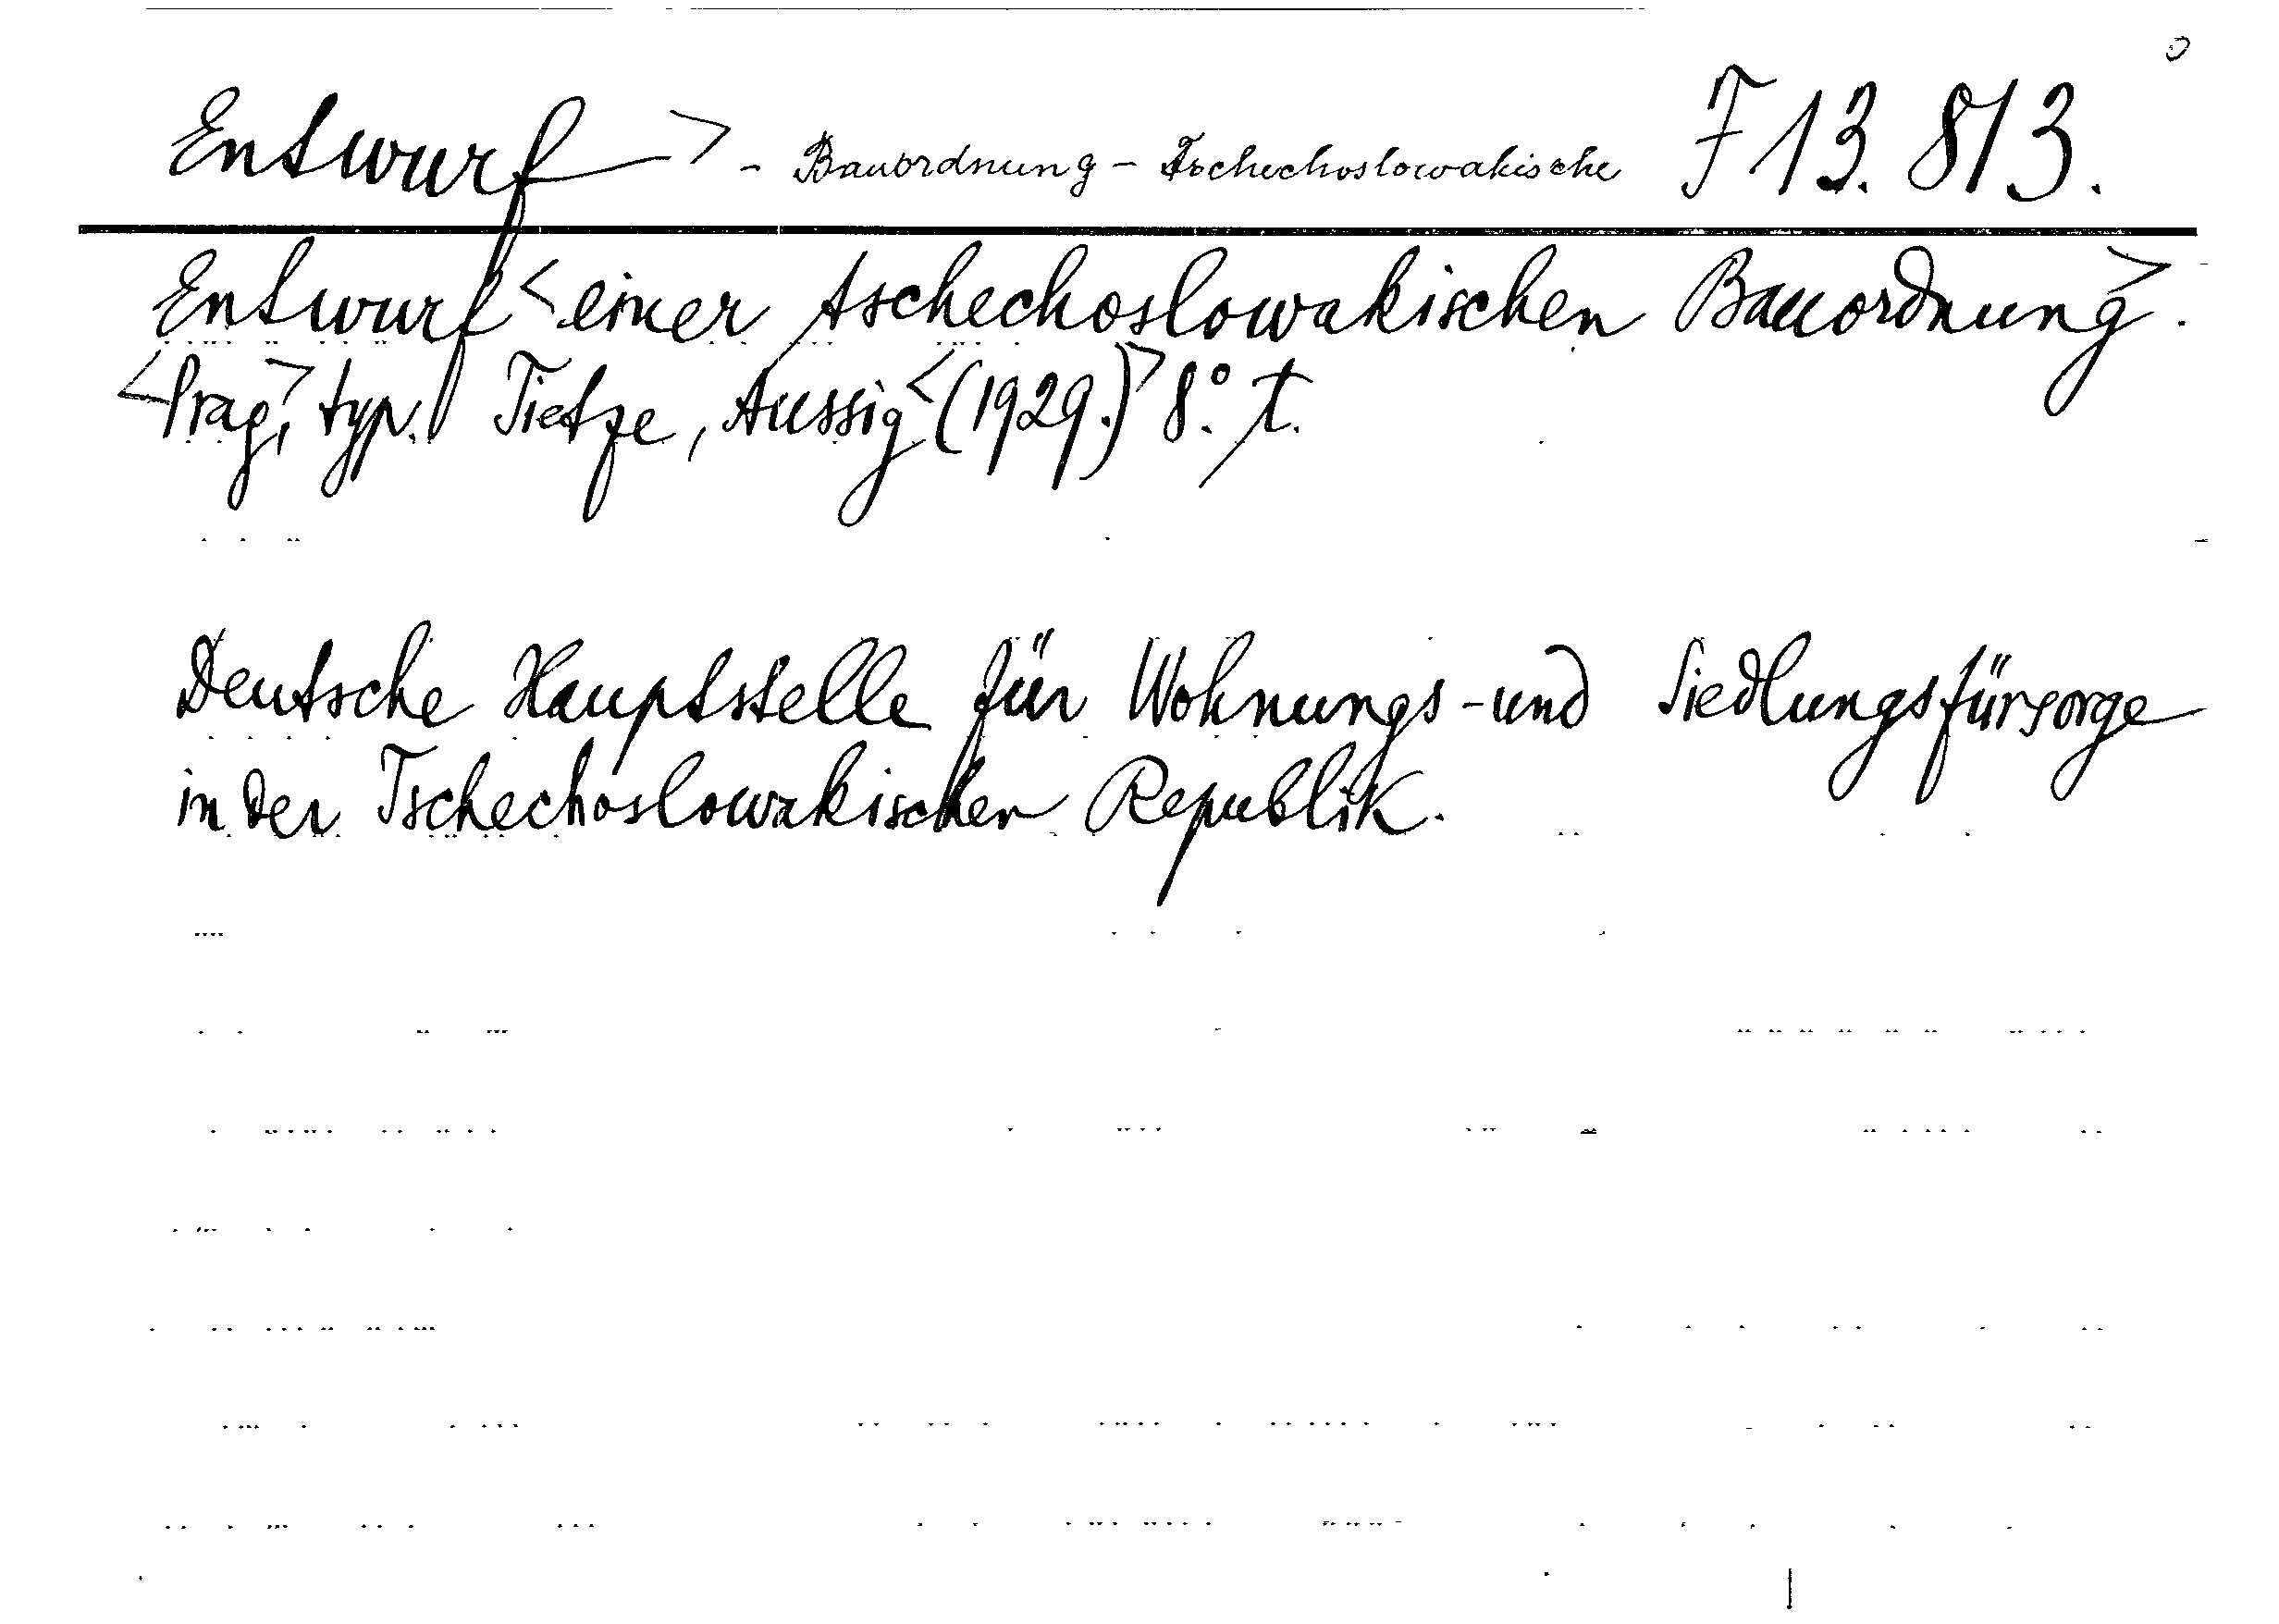 Entwurf > - Bauordnung - Tschechoslowakische F 13.813.
Entwurf < einer tschechoslowakischen Bauordnung >.
< Prag >, typ. Tietze, Aussig < (1929.) > 8°. t.
Deutsche Hauptstelle für Wohnungs- und Siedlungsfürsorge
in der Tschechoslowakischen Republik.